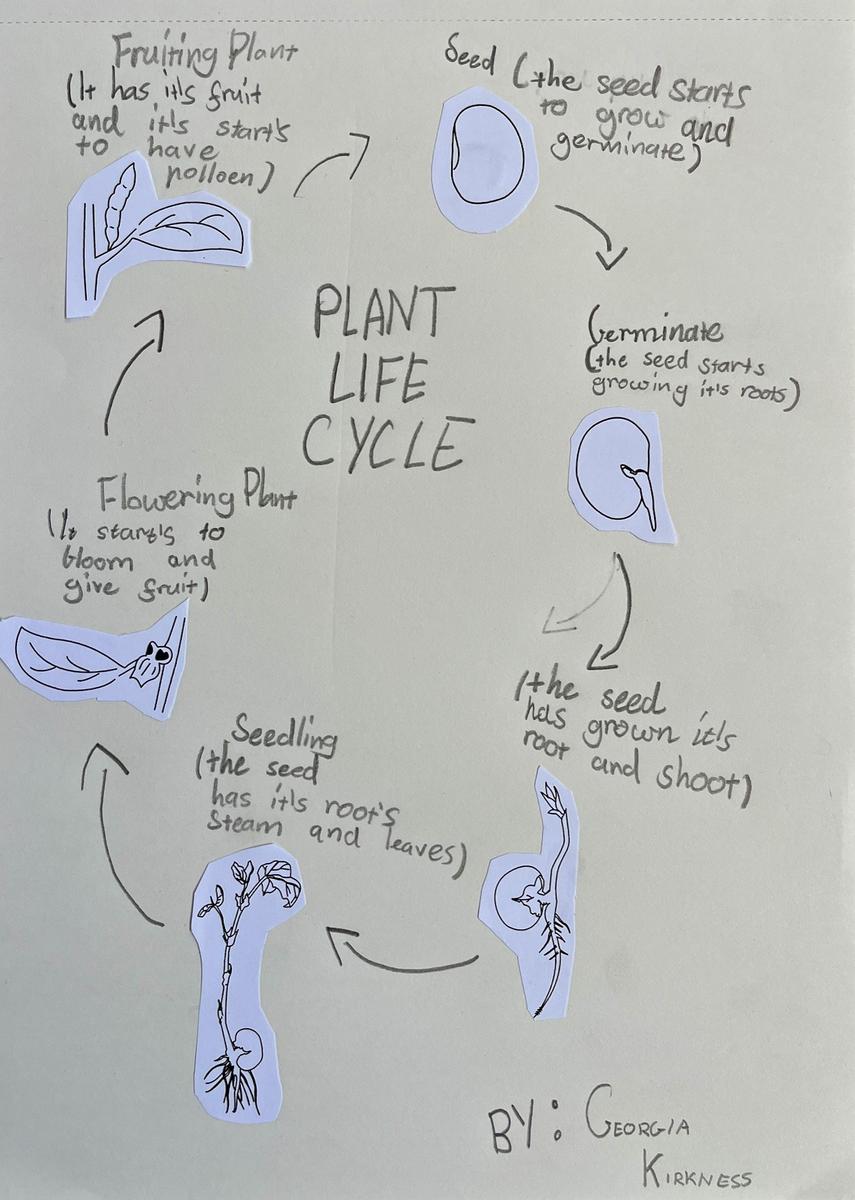 PLANT
LIFE
CYCLE
Seed (the seed starts
to grow and
germinate)
Germinate
(the seed starts
growing it's roots)
(the seed
has grown it's
root and shoot)
Seedling
(the seed
has it's root's
Steam and leaves)
Flowering Plant
(It start's to
bloom and
give fruit)
Fruiting Plant
(It has it's fruit
and it's start's
to have
polloen)
BY: GEORGIA
KIRKNESS